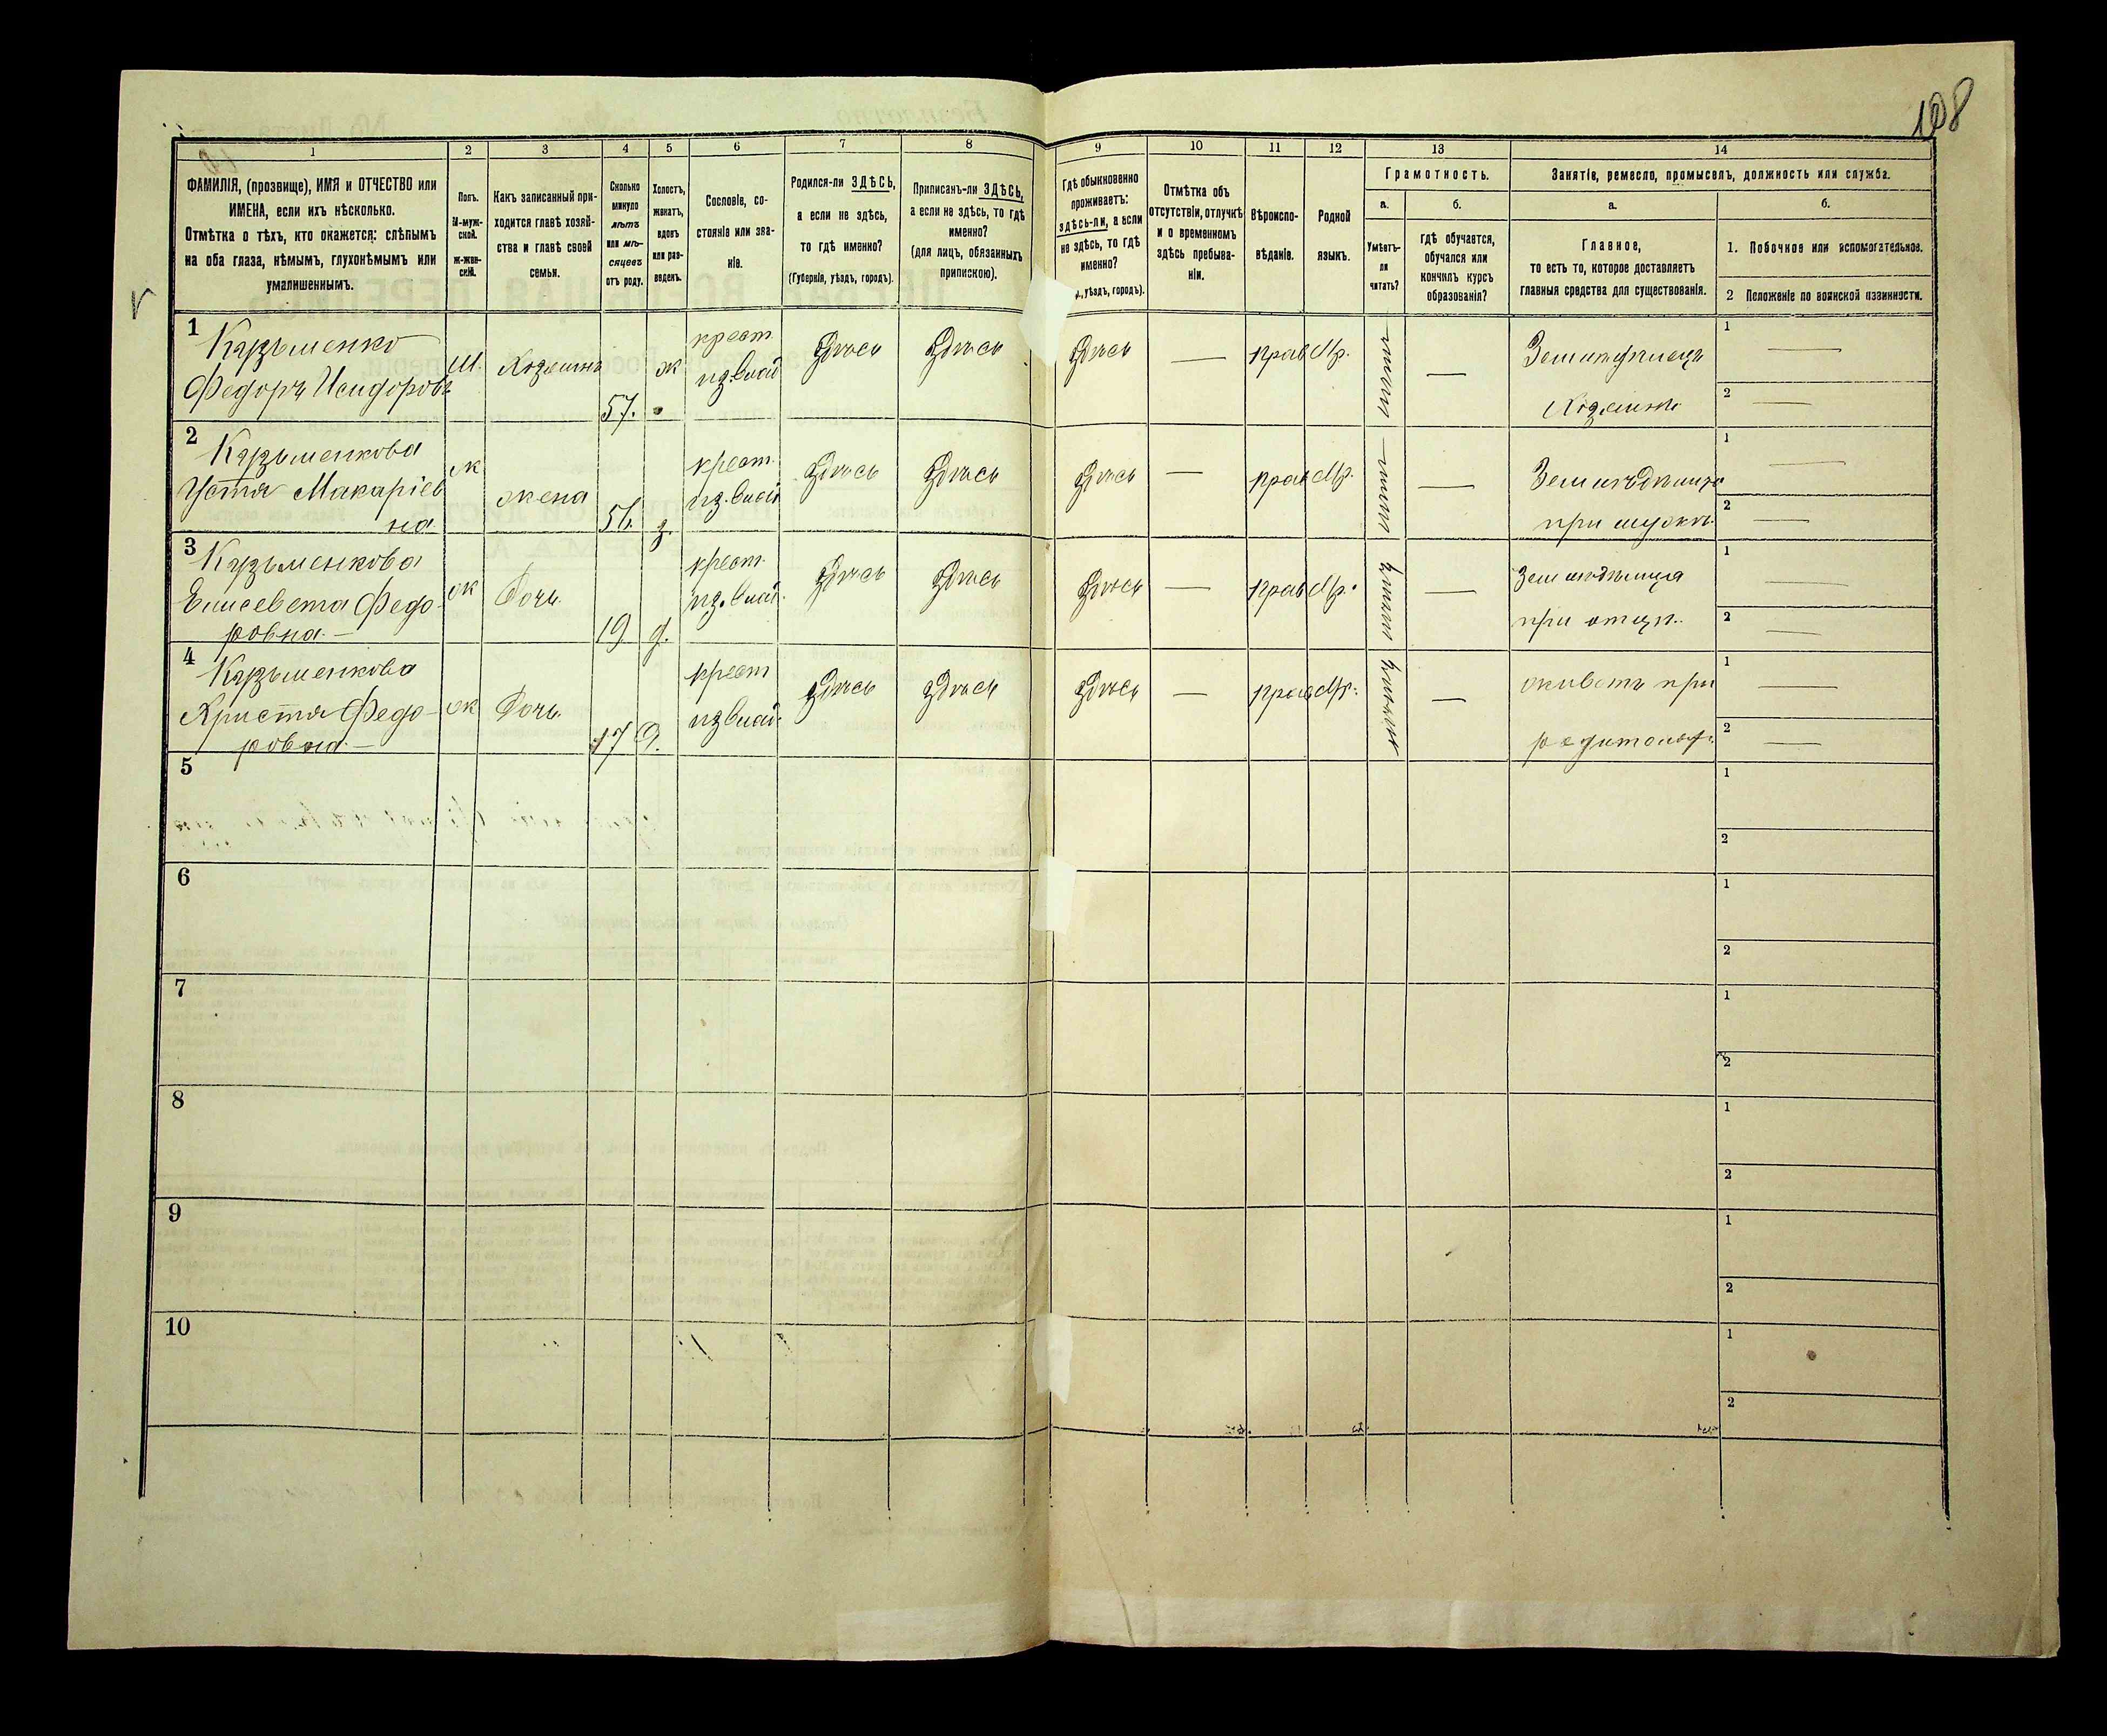 108
1
2
3
4
5
6
7
8
9
10
11
12
13
14
ФАМИЛІЯ, (прозвище), ИМЯ и ОТЧЕСТВО или
ИМЕНА, если ихъ нѣсколько.
Отмѣтка о тѣхъ, кто окажется: слѣпымъ
на оба глаза, нѣмымъ, глухонѣмымъ или
умалишеннымъ.
Полъ.
М-муж-
ской.
ж-жен-
скій.
Какъ записанный при-
ходится главѣ хозяй-
ства и главѣ своей
семьи.
Сколько
минуло
лѣтъ
или мѣ-
сяцевъ
отъ роду.
Холостъ,
женатъ,
вдовъ
или раз-
веденъ.
Сословіе, со-
стояніе или зва-
ніе.
Родился-ли ЗДѢСЬ,
а если не здѣсь,
то гдѣ именно?
(Губернія, уѣздъ, городъ).
Приписанъ-ли ЗДѢСЬ,
а если не здѣсь, то гдѣ
именно?
(для лицъ, обязанныхъ
припискою).
Гдѣ обыкновенно
проживаетъ:
здѣсь-ли, а если
не здѣсь, то гдѣ
именно?
уѣздъ, городъ).
Отмѣтка объ
отсутствіи, отлучкѣ
и о временномъ
здѣсь пребыва-
ніи.
Вѣроиспо-
вѣданіе.
Родной
языкъ.
Грамотность.
а.
Умѣетъ-
ли
читать?
б.
гдѣ обучается,
обучался или
кончилъ курсъ
образованія?
Занятіе, ремесло, промыселъ, должность или служба.
а.
Главное,
то есть то, которое доставляетъ
главныя средства для существованія.
б.
1. Побочное или вспомогательное.
2 Положеніе по воинской повинности.
1
Кузьменко
Федоръ Исидоровъ
М.
Хозяинъ
57.
ж
крест.
из.влад
Здѣсь
Здѣсь
Здѣсь
—
прав
Мр.
—
Хозяинъ
1 —
2 —
2
Кузьменкова
Устя Макаріев
на
ж
жена
56
з.
крест.
из.влад
Здѣсь
Здѣсь
Здѣсь
—
прав
Мр.
—
Земледѣлица
при мужѣ.
1 —
2 —
3
Кузьменкова
Елисевета Федо-
ровна.—
ж
Дочь.
19
д.
крест.
из.влад.
Здѣсь
Здѣсь
Здѣсь
—
прав
Мр.
—
Земледѣлица
при отцѣ.
1 —
2 —
4
Кузьменкова
Христя Федо-
ровна.—
ж
Дочь.
17
д.
крест
из влад.
Здѣсь
Здѣсь
Здѣсь
—
прав
Мр.
—
живетъ при
1 —
2 —
5
1
2
6
1
2
7
1
2
8
1
2
9
1
2
10
1
2